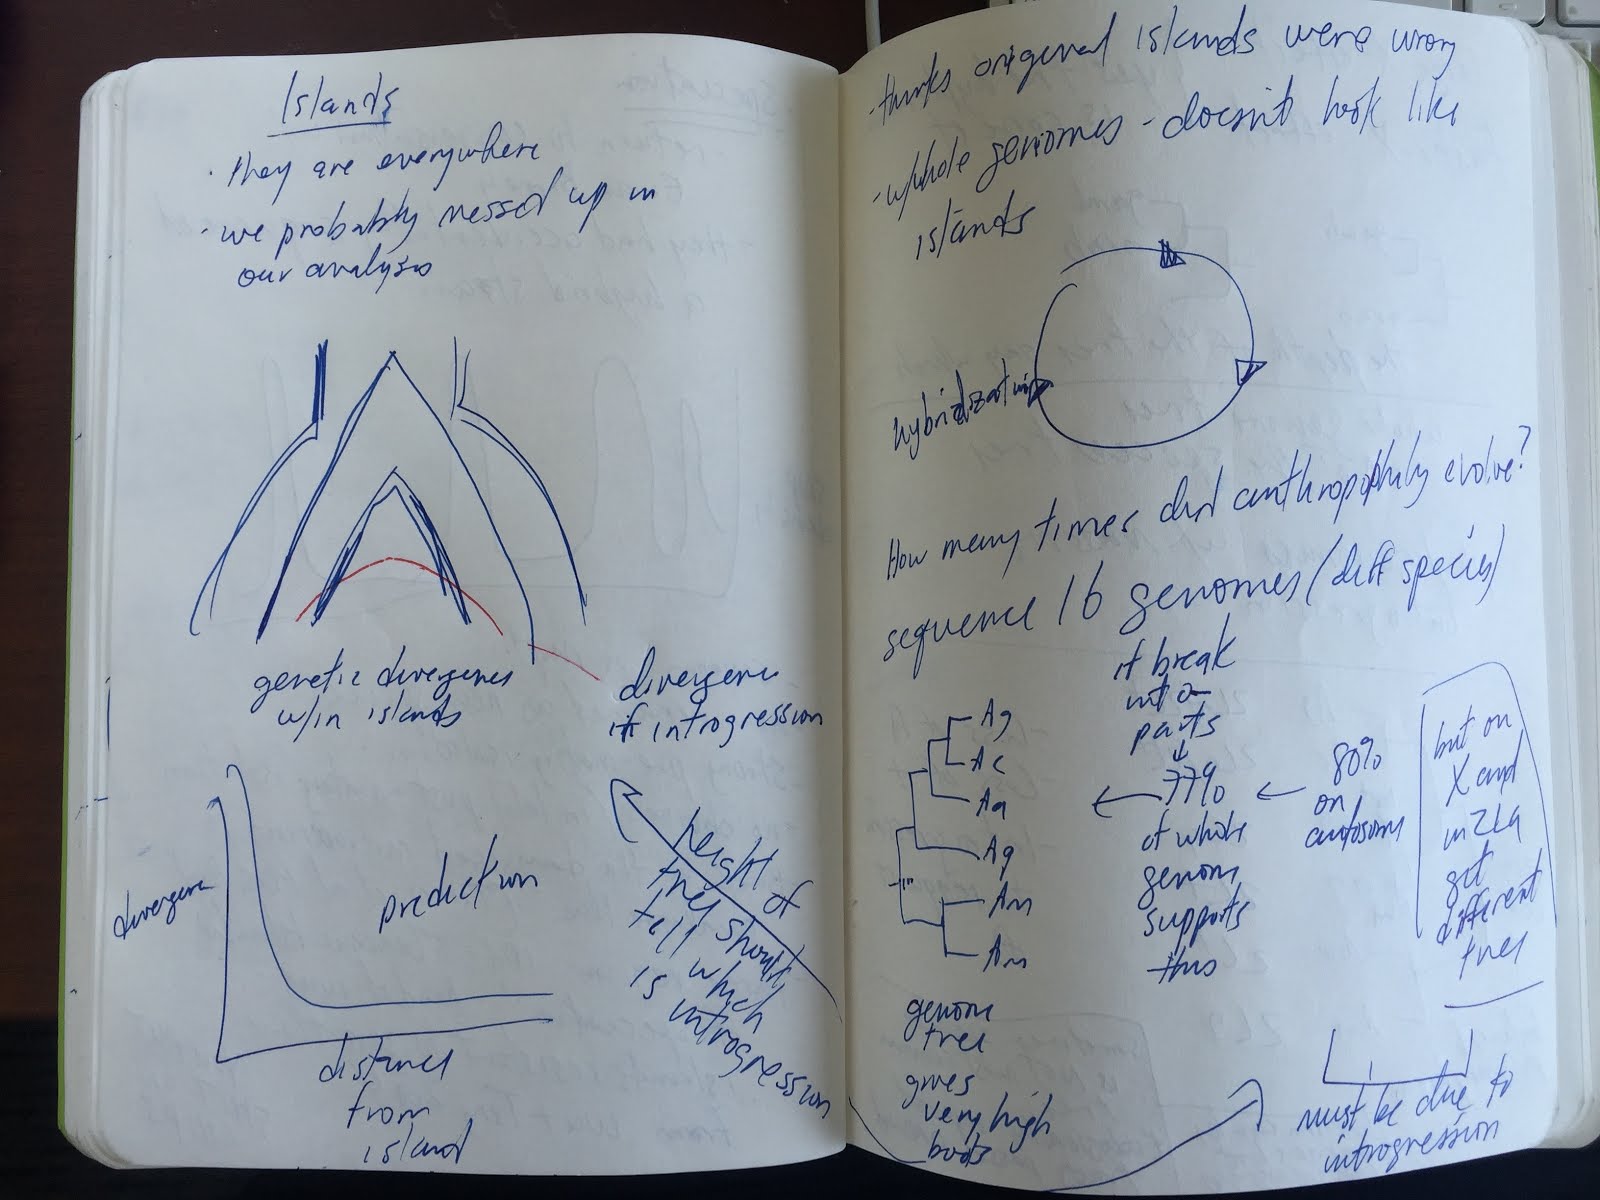 Islands
· they are everywhere
· we probably messed up in
our analysis
genetic divergence
w/in islands
divergence
if introgression
divergence
prediction
distance
from
island
height of
tree should
tell which
is introgression
· thinks original islands were wrong
· whole genomes - doesn't look like
islands
hybridization
How many times did anthropophily evolve?
sequence 16 genomes (diff species)
if break
into
parts
↓
77%
of whole
genome
supports
this
80%
on
autosome
but on
X and
in 2La
get
different
tree
Ag
Ac
Aa
Aq
Am
Am
genome
tree
gives
very high
boots
must be due to
introgression